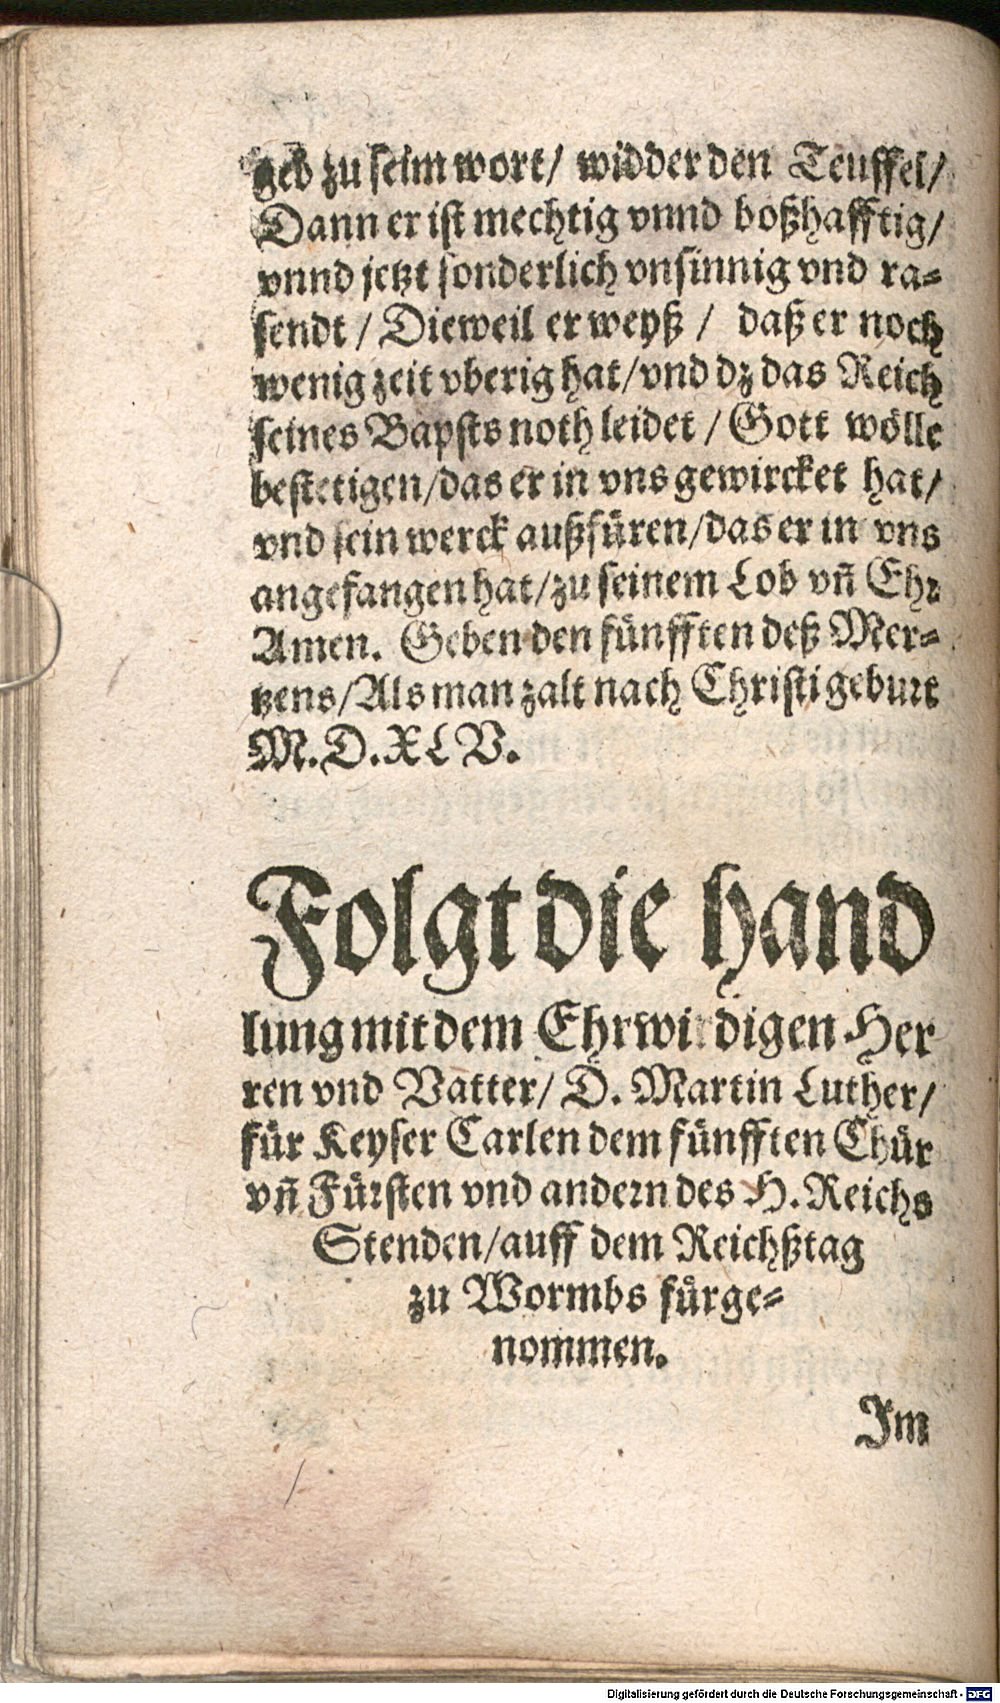 geb zu seim wort/ widder den Teuffel/
Dann er ist mechtig vnnd boßhafftig/
vnnd jetzt sonderlich vnsinnig vnd ra-
sendt / Dieweil er weyß / daß er noch
wenig zeit vberig hat/vnd dz das Reich
seines Bapsts noth leidet / Gott wölle
bestetigen/das er in vns gewircket hat/
vnd sein werck außfüren/das er in vns
angefangen hat/zu seinem Lob vñ Ehr
Amen. Geben den fünfften deß Mer-
tzens/Als man zalt nach Christi geburt
M.D.XLV.
Folgt die hand
lung mit dem Ehrwirdigen Her
ren vnd Vatter/ D. Martin Luther/
für Keyser Carlen dem fünfften Chür
vñ Fürsten vnd andern des H. Reichs
Stenden/auff dem Reichßtag
zu Wormbs fürge-
nommen.
Im
Digitalisierung gefördert durch die Deutsche Forschungsgemeinschaft - DFG